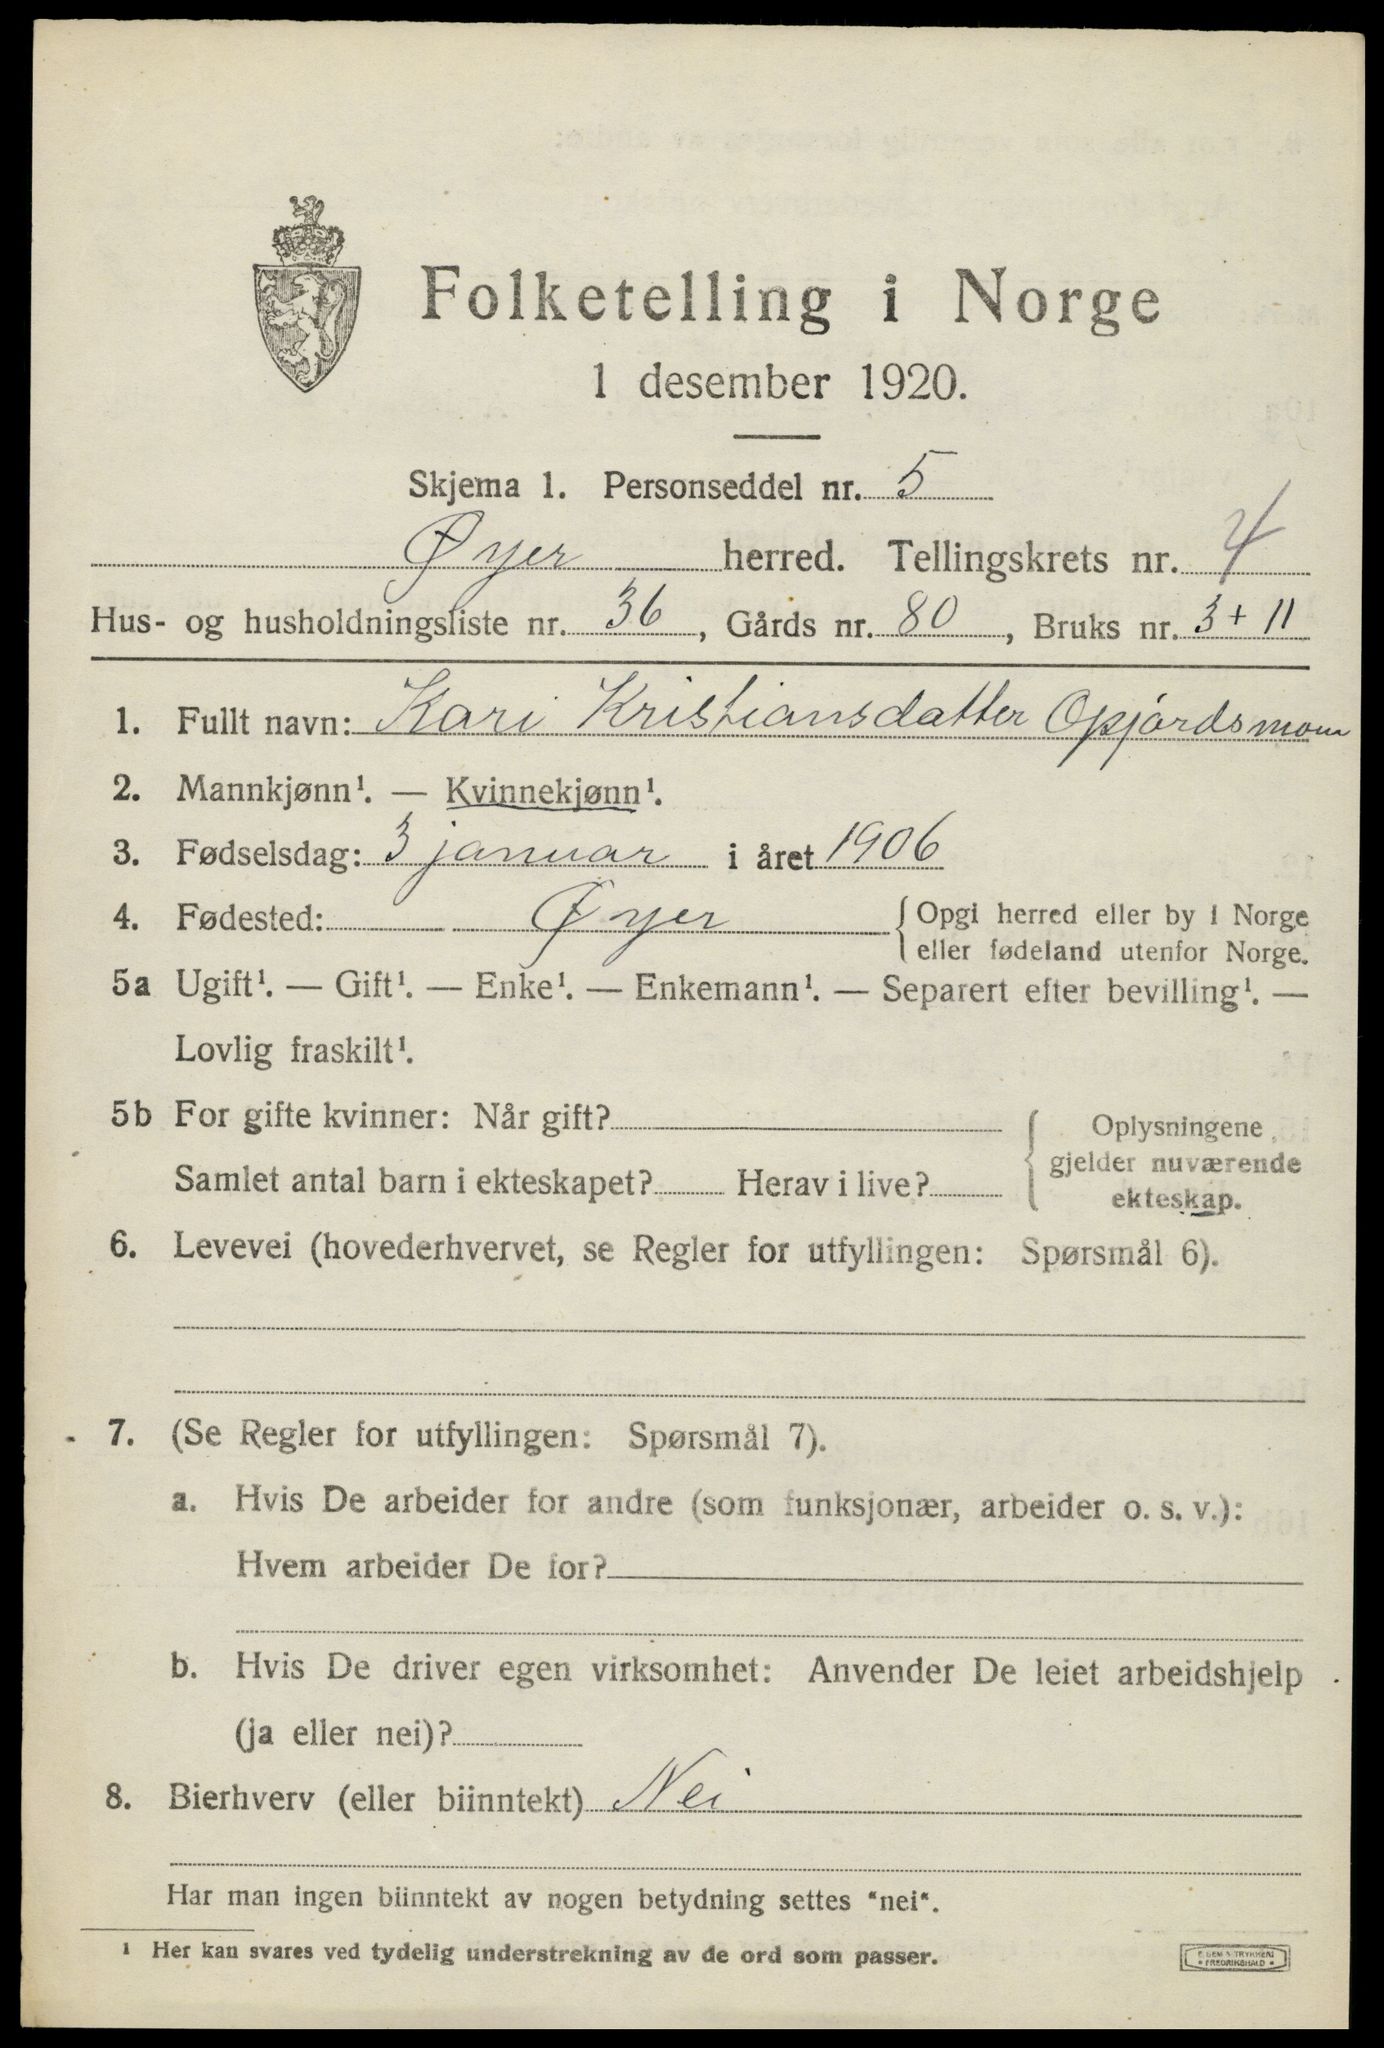 Folketelling i Norge
1 desember 1920.
Skjema 1. Personseddel nr. 5
Øyer herred. Tellingskrets nr. 4
Hus- og husholdningsliste nr. 36, Gårds nr. 80, Bruks nr. 3 + 11
1. Fullt navn: Kari Kristiansdatter Opjordsmoen
2. Mannkjønn¹. — Kvinnekjønn¹.
3. Fødselsdag: 3 januar i året 1906
4. Fødested: Øyer { Opgi herred eller by i Norge
eller fødeland utenfor Norge.
5a Ugift¹. — Gift¹. — Enke¹. — Enkemann¹. — Separert efter bevilling¹. —
Lovlig fraskilt¹.
5b For gifte kvinner: Når gift?
Samlet antal barn i ekteskapet? Herav i live?
Oplysningene
gjelder nuværende
ekteskap.
6. Levevei (hovederhvervet, se Regler for utfyllingen: Spørsmål 6).
7. (Se Regler for utfyllingen: Spørsmål 7).
a. Hvis De arbeider for andre (som funksjonær, arbeider o. s. v.):
Hvem arbeider De for?
b. Hvis De driver egen virksomhet: Anvender De leiet arbeidshjelp
(ja eller nei)?
8. Bierhverv (eller biinntekt) Nei
Har man ingen biinntekt av nogen betydning settes "nei".
¹ Her kan svares ved tydelig understrekning av de ord som passer.
FREDRIKSHALD